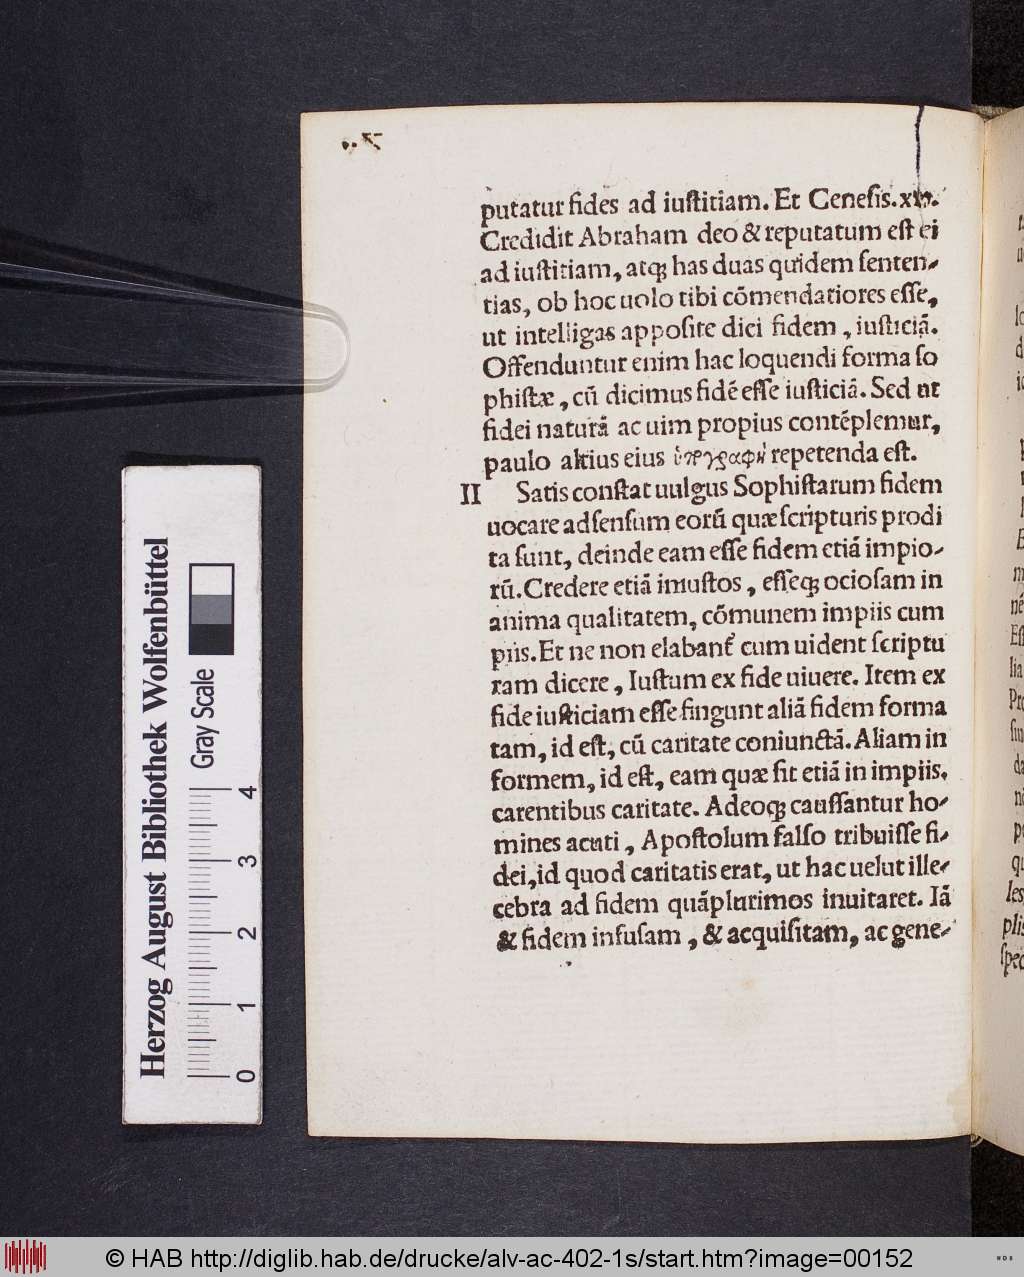 putatur fides ad iustitiam. Et Genesis. xv.
Credidit Abraham deo & reputatum est ei
ad iustitiam, atq; has duas quidem senten-
tias, ob hoc uolo tibi cōmendatiores esse,
ut intelligas apposite dici fidem, iusticiā.
Offenduntur enim hac loquendi forma so
phistæ, cū dicimus fidē esse iusticiā. Sed ut
fidei naturā ac uim propius contēplemur,
paulo altius eius ὑπογραφὴ repetenda est.
II Satis constat uulgus Sophistarum fidem
uocare adsensum eorū quæ scripturis prodi
ta sunt, deinde eam esse fidem etiā impio-
rū. Credere etiā iniustos, esseq; ociosam in
anima qualitatem, cōmunem impiis cum
piis. Et ne non elabant᷑ cum uident scriptu
ram dicere, Iustum ex fide uiuere. Item ex
fide iusticiam esse fingunt aliā fidem forma
tam, id est, cū caritate coniunctā. Aliam in
formem, id est, eam quæ sit etiā in impiis,
carentibus caritate. Adeoq; caussantur ho-
mines acuti, Apostolum falso tribuisse fi-
dei, id quod caritatis erat, ut hac uelut ille-
cebra ad fidem quāplurimos inuitaret. Iā
& fidem infusam, & acquisitam, ac gene-
Herzog August Bibliothek Wolfenbüttel
Gray Scale
0 1 2 3 4
© HAB http://diglib.hab.de/drucke/alv-ac-402-1s/start.htm?image=00152